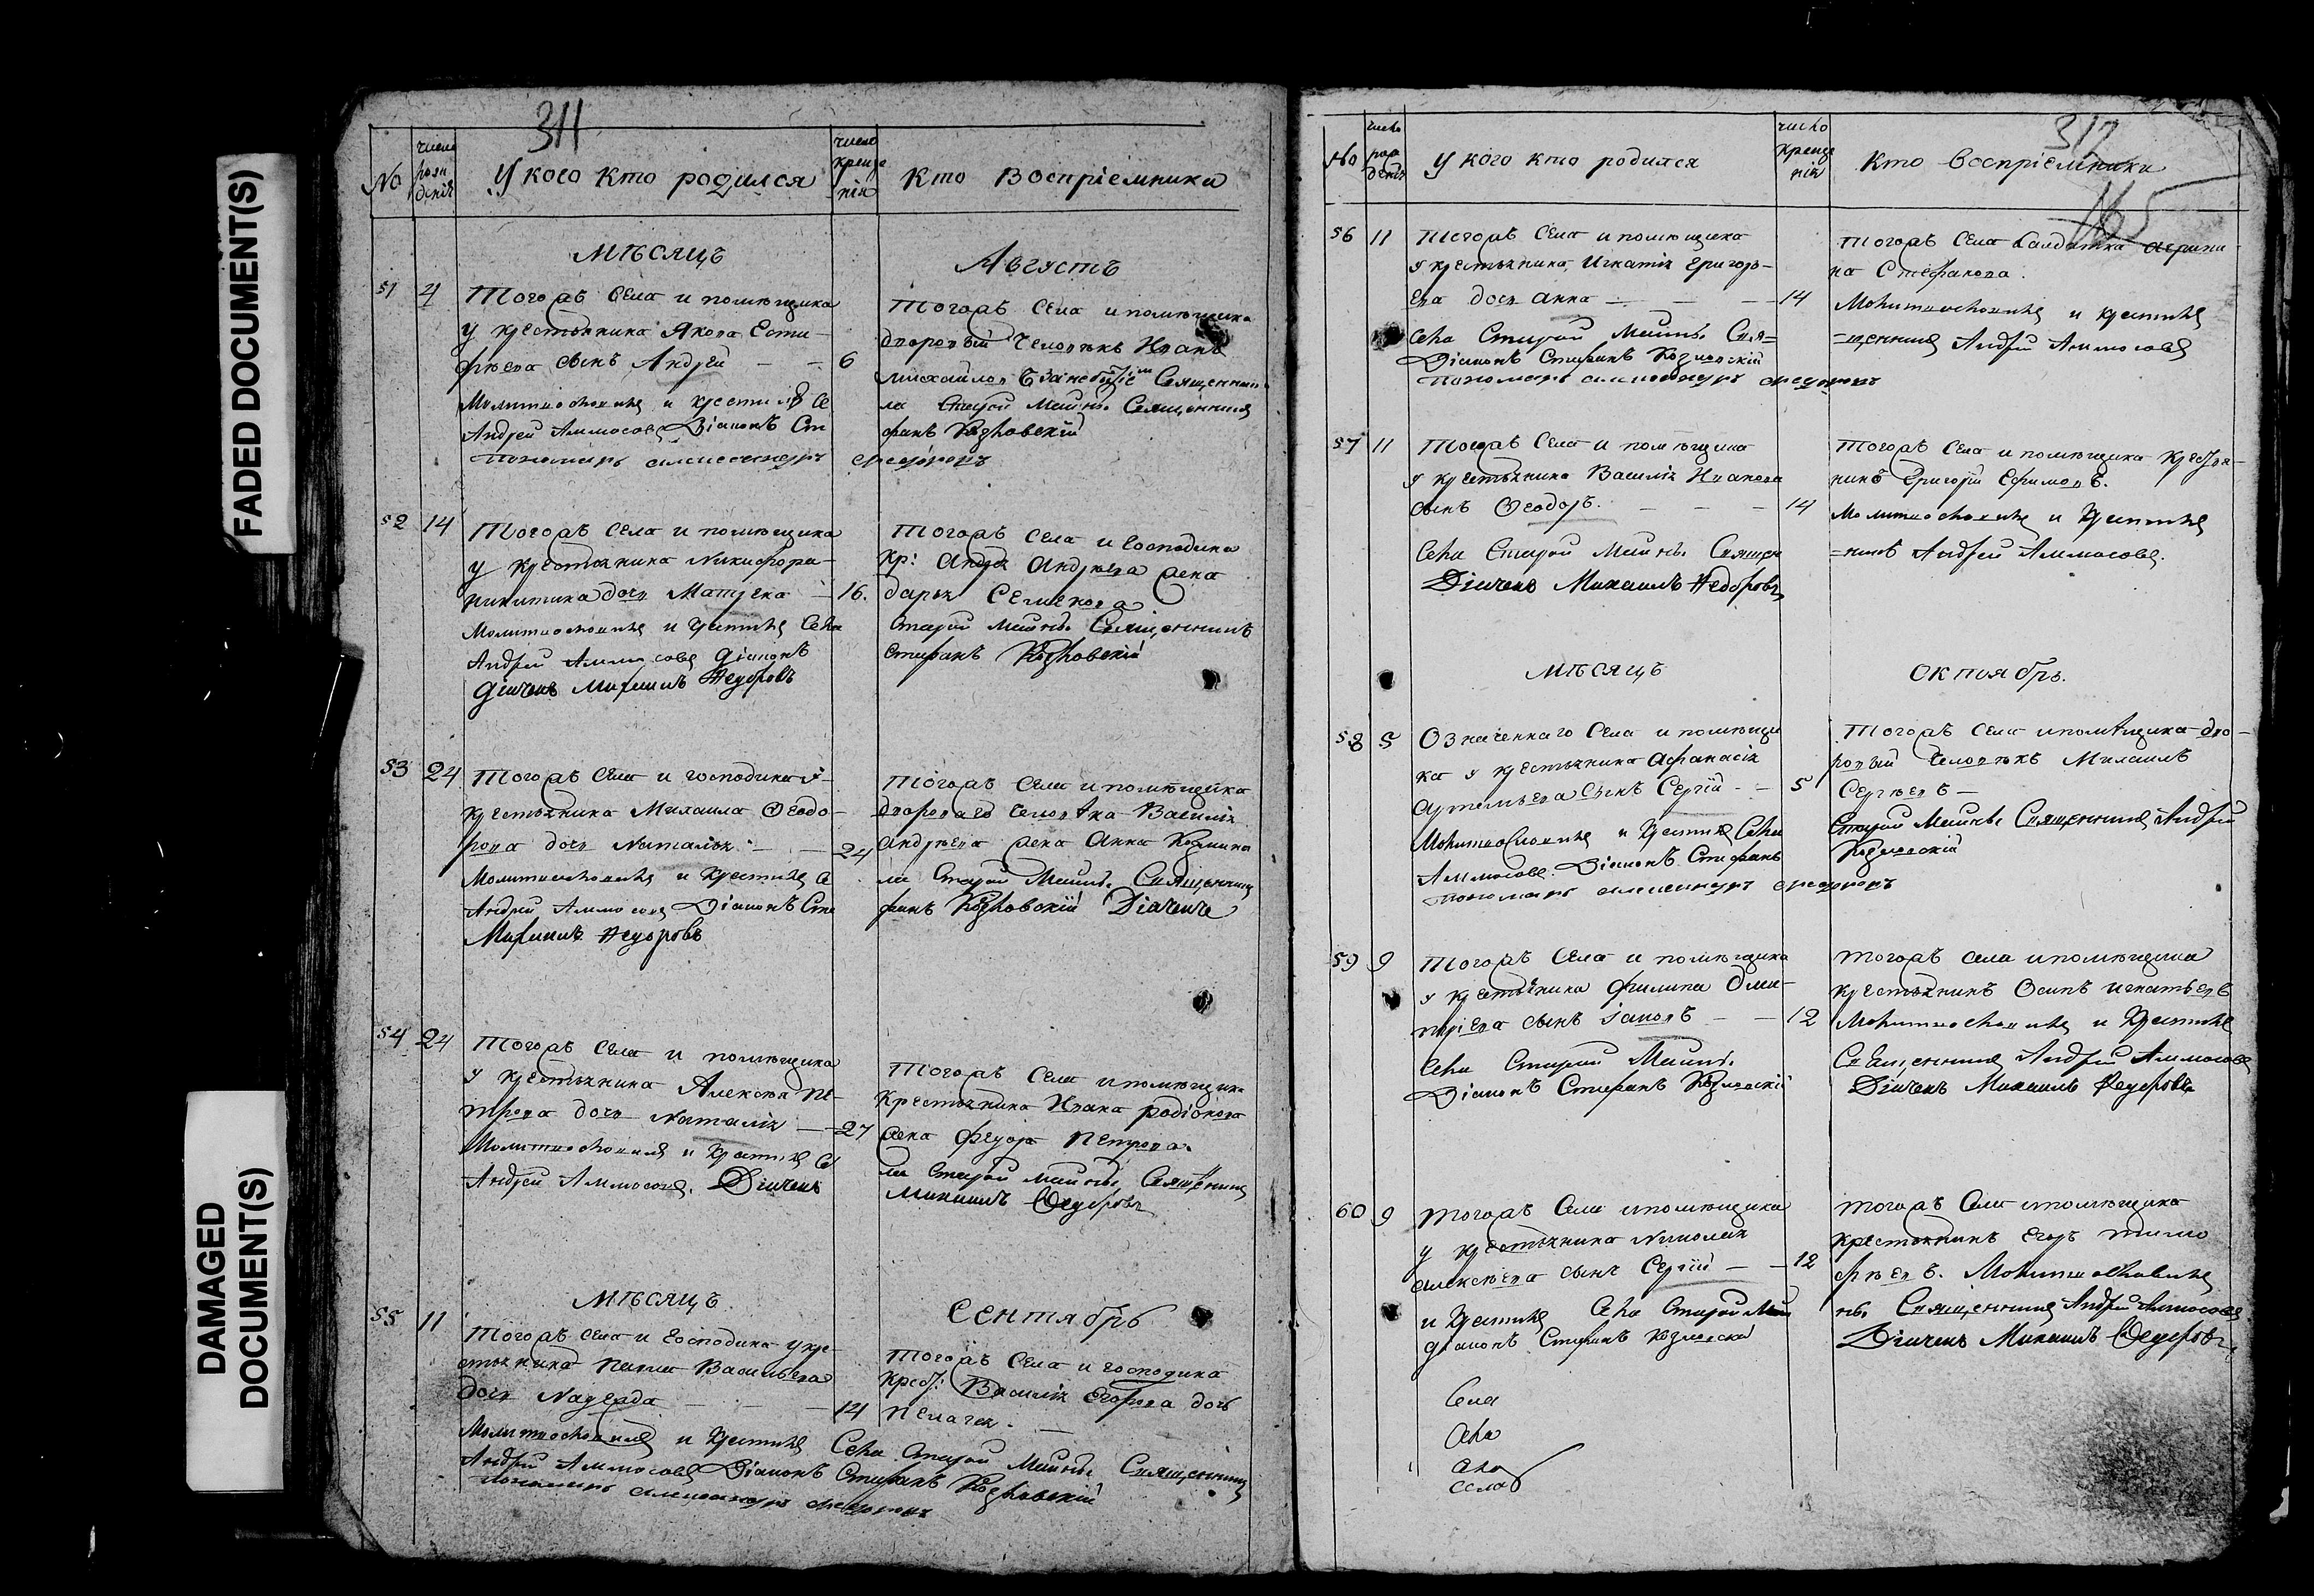 FADED DOCUMENT(S)
DAMAGED
DOCUMENT(S)
311
No
число
рож
денія
У кого кто родился
число
креще
нія
Кто Воспріемники
мѣсяцъ
Августъ
51
4
Тогожъ села и помѣщика
у крестьянина Якова Ести-
фѣева сынъ Андрей
6
Молитвословилъ и крестилъ Се
Андрей Аммосовъ Діаконъ Сте
пономарь александръ федоровъ
Тогожъ села и помѣщика
дворовый человѣкъ Иванъ
Михайловъ
Священни
ла Старой Майны Священникъ
фанъ Козловскій
52
14
Тогожъ села и помѣщика
у крестьянина Никифора
никитина дочь Матрена
16.
Молитвословилъ и крестилъ Села
Андрей Аммосовъ діаконъ
Дьячекъ Михаилъ Федоровъ
Тогожъ села и господина
кр: Андрея Андрѣева жена
дарья Семенова
Старой Майны Священникъ
Стефанъ Козловскій
53
24
Тогожъ села и господина у
крестьянина Михаила Ѳеодо-
рова дочь Наталья
24
Молитвословилъ и крестилъ Се
Андрей Аммосовъ Діаконъ Сте
Михаилъ Федоровъ
Тогожъ села и помѣщика
двороваго человѣка Василія
Андрѣева жена Анна Козмина
ла Старой Майны Священникъ
фанъ Козловскій Дьячекъ
54
24
Тогожъ села и помѣщика
у крестьянина Алексѣя Пе-
трова дочь Наталія
27
Молитвословилъ и крестилъ Се
Андрей Аммосовъ. Дьячекъ
Тогожъ села и помѣщика
Крестьянина Ивана родіонова
жена Ѳедора Петрова
ла Старой Майны Священникъ
Михаилъ Ѳедоровъ
мѣсяцъ
Сентябрь
55
11
Тогожъ села и господина у кре-
стьянина Павла Васильева
дочь Надежда
14
Тогожъ села и господина
крест: Василія Егорова дочь
Пелагея
Молитвословилъ и крестилъ Села Старой Майны Священникъ
Андрей Аммосовъ Діаконъ Стефанъ Козловскій
пономарь александръ федоровъ
312
165
No
число
рож
денія
У кого кто родился
число
креще
нія
Кто Воспріемники
56
11
Тогожъ села и помѣщика
у крестьянина Игнатія Григорь-
ева дочь Анна
14
Села Старой Майны Свя=
Діаконъ Стефанъ Козловскій
пономарь александръ федоровъ
Тогожъ села Салдатка Агрипи
на Стефанова.
Молитвословилъ и крестилъ
=щенникъ Андрей Аммосовъ
57
11
Тогожъ села и помѣщика
у крестьянина Василія Иванова
сынъ Ѳеодоръ.
14
Села Старой Майны Священ
Дьячекъ Михаилъ Федоровъ
Тогожъ села и помѣщика крестья-
нинъ Григорій Ефимовъ.
Молитвословилъ и крестилъ
=никъ Андрей Аммосовъ.
мѣсяцъ
октоябрь.
58
5
Означеннаго села и помѣщи
ка у крестьянина Афанасія
Артемьева сынъ Сергій
5
Молитвословилъ и крестилъ Села
Аммосовъ. Діаконъ Стефанъ
пономарь александръ федоровъ
Тогожъ села и помѣщика дво-
ровый человѣкъ Михаилъ
Сергѣевъ
Старой Майны Священникъ Андрей
Козловскій
59
9
Тогожъ села и помѣщика
у крестьянина Филипа Дми-
тріева сынъ Іаковъ
12
Села Старой Майны
Діаконъ Стефанъ Козловскій
тогожъ села и помѣщика
крестьянинъ Осипъ Игнатьевъ
Молитвословилъ и крестилъ
Священникъ Андрей Аммосовъ
Дьячекъ Михаилъ Федоровъ
60
9
Тогожъ села и помѣщика
у крестьянина Николая
алексѣева сынъ Сергій
12
и крестилъ Села Старой Май
діаконъ Стефанъ Козловскій
тогожъ села и помѣщика
крестьянинъ Егоръ тимо
фѣевъ. Молитвословилъ
ны Священникъ Андрей Аммосовъ
Дьячекъ Михаилъ Ѳедоровъ
Села